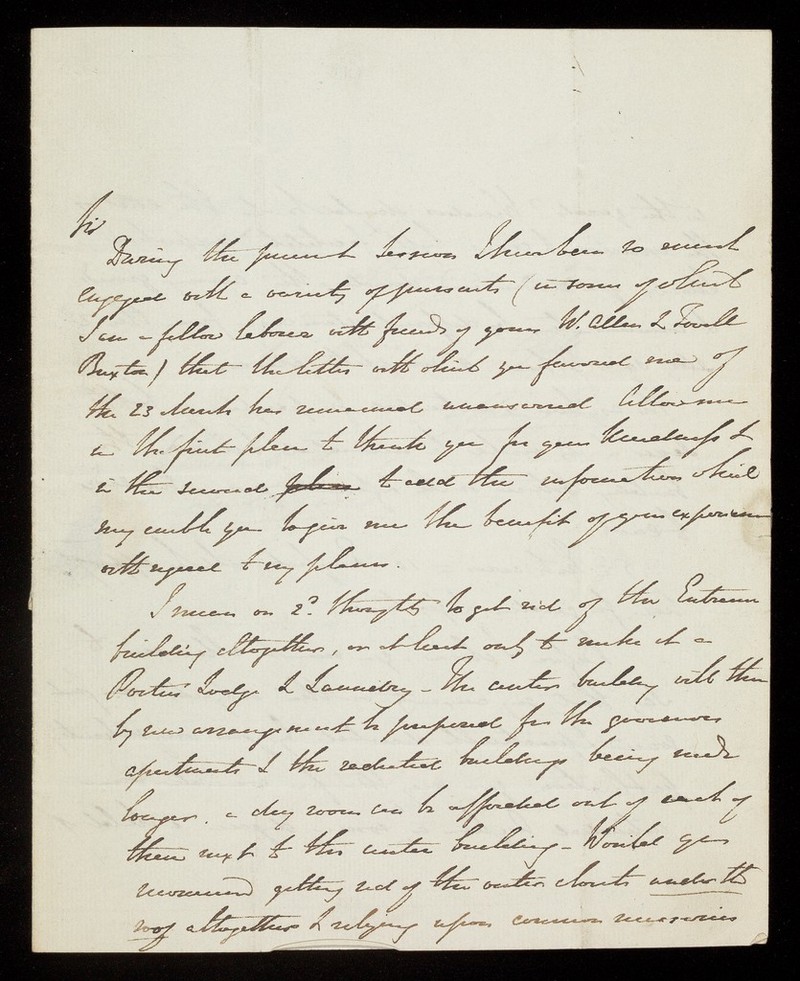 Sir
During the present Session I have been so much
engaged with a variety of pursuits (in some of which
I am a fellow labourer with friends of yours W. Allen & Fowell
Buxton) that the letter with which you favored me of
the 23 March has remained unanswered Allow me
in the first place to thank you for your kindness &
in the second place to add the information which
may enable you to give me the benefit of your experience
with regard to my plans.
I mean on 2d. thoughts to get rid of the Entrance
building altogether, or at least only to make it a
Porters Lodge & Laundry - The center building will then
by new arrangement be prepared for the governors
apartments & the radiated buildings being made
longer, a day room can be afforded out of each of
them next to the center building - Would you
recommend getting rid of the water closets under the
roof altogether & relying upon common necessaries